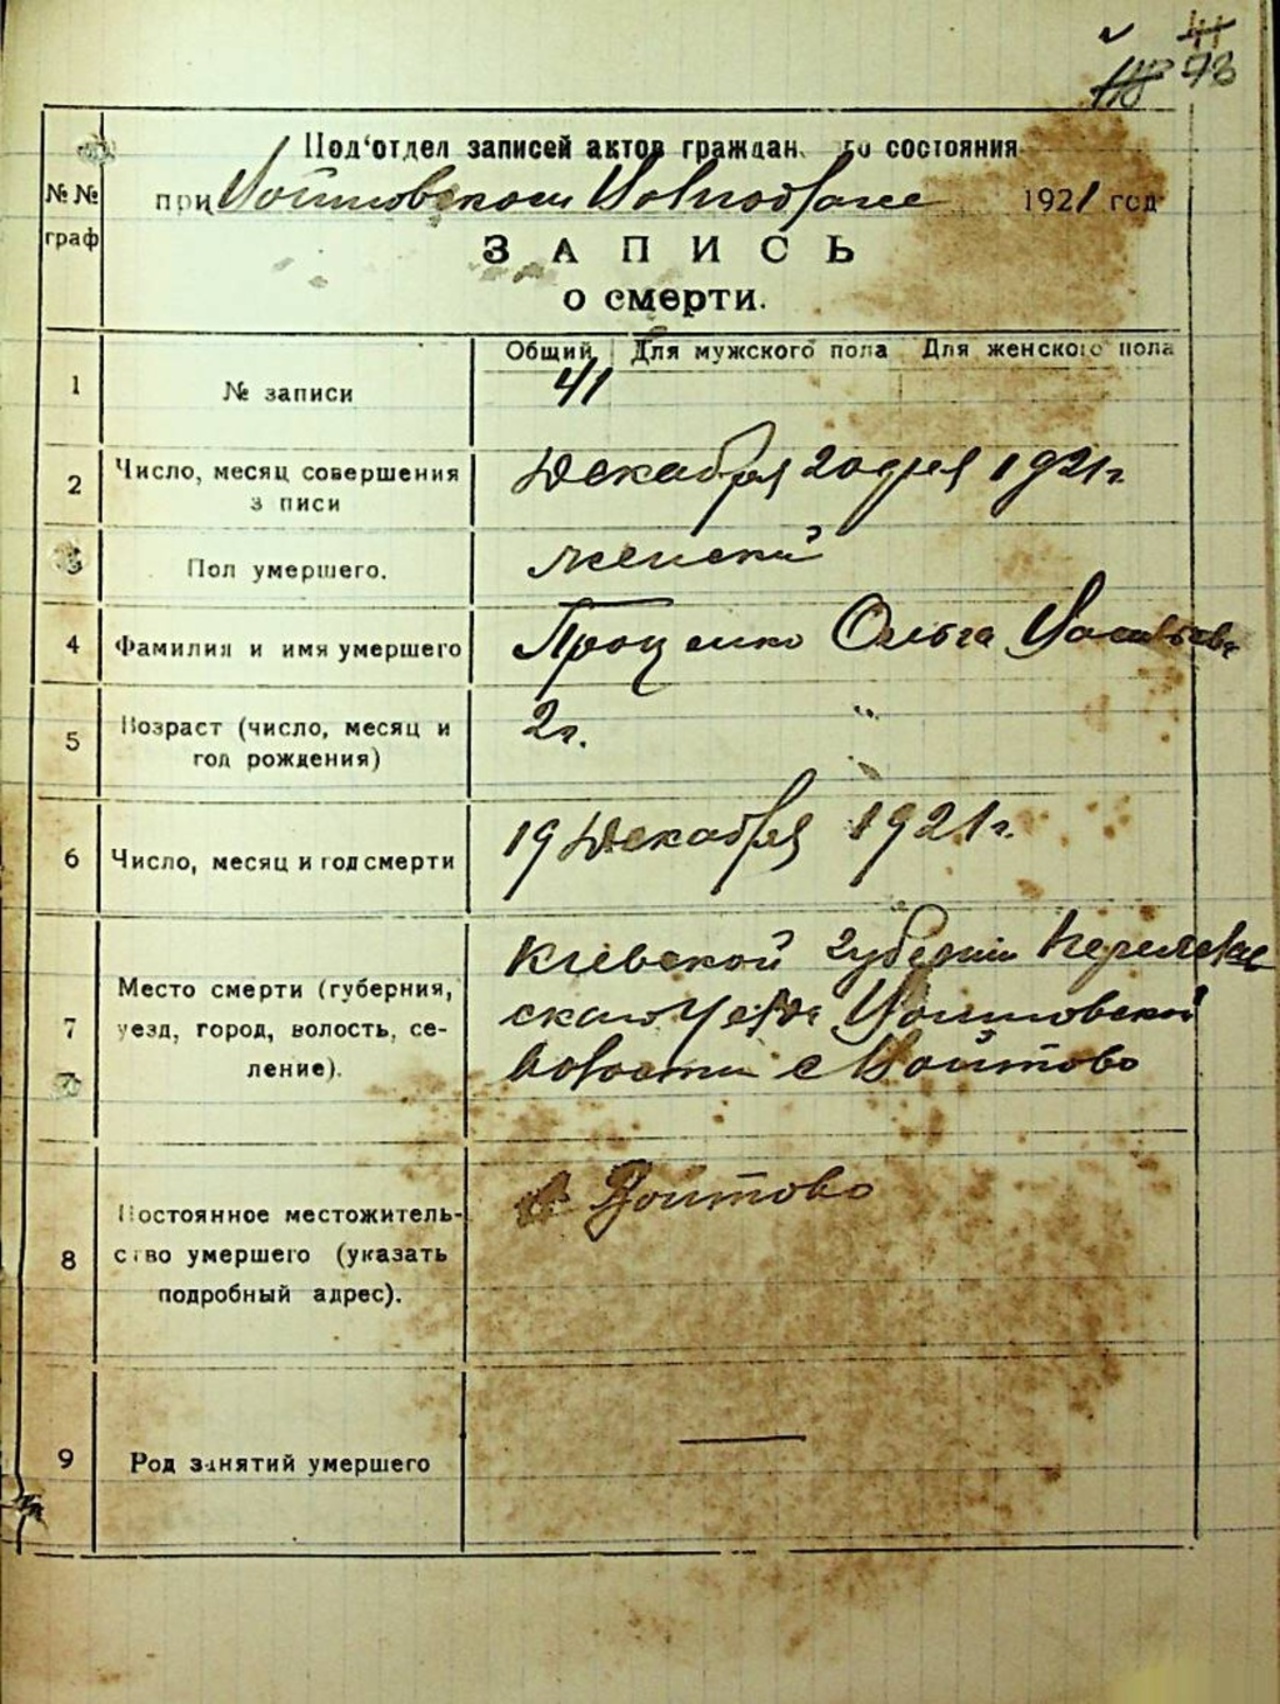 73
Под‘отдел записей актов граждан го состояния
при Войтовском Волподотделе 1921 год
№№
граф
ЗАПИСЬ
о смерти.
Общий Для мужского пола Для женского пола
1 № записи 41
2 Число, месяц совершения Декабря 20 дня 1921 г.
з писи
3 Пол умершего. женский
4 Фамилия и имя умершего Проценко Ольга
5 Возраст (число, месяц и 2 г. "
год рождения)
6 Число, месяц и год смерти 19 Декабря 1921 г.
Киевской губернии
7 Место смерти (губерния, ского уезда Войтовской
уезд, город, волость, се- волости с Войтово
ление).
Войтово
Постоянное местожитель-
8 ство умершего (указать
подробный адрес).
9 Род занятий умершего —